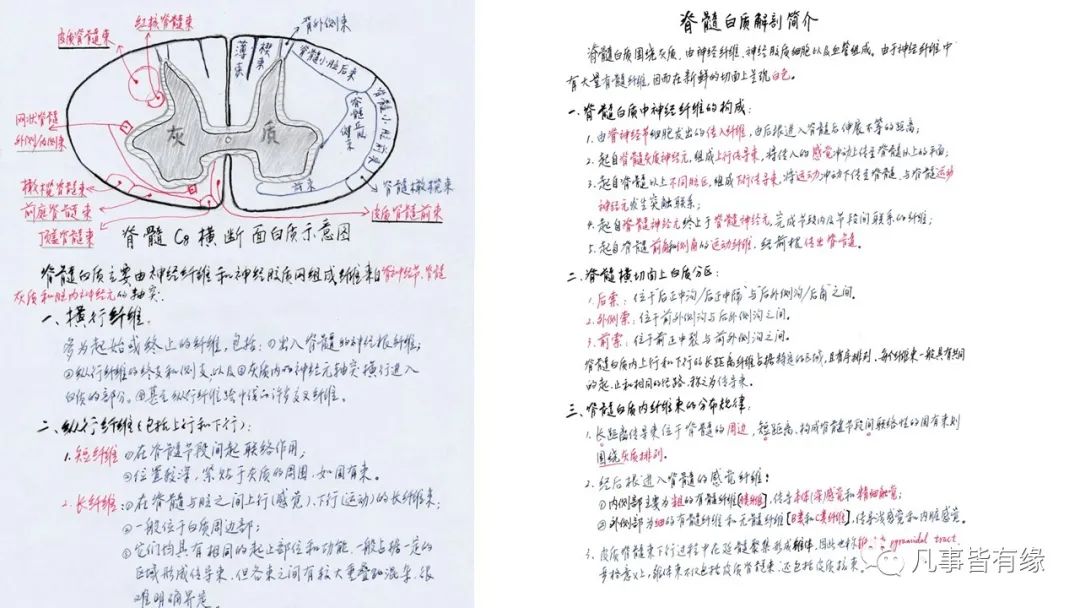 红核脊髓束
皮质脊髓束
背外侧束
薄束
楔束
脊髓小脑后束
网状脊髓
外侧/内侧束
灰 质
脊髓丘脑侧束
脊髓小脑前束
前束
橄榄脊髓束
前庭脊髓束
顶盖脊髓束
脊髓橄榄束
皮质脊髓前束
脊髓C8横断面白质示意图
脊髓白质主要由神经纤维和神经胶质网组成纤维来自脊神经节、脊髓
灰质和脑内神经元的轴突.
一、横行纤维.
多为起始或终止的纤维,包括:①出入脊髓的神经根纤维;
②纵行纤维的终支和侧支,以及③灰质内的神经元轴突横行进入
白质的部分。④甚至纵行纤维路中线的许多交叉纤维。
二、纵行纤维(包括上行和下行):
1.短纤维 ①在脊髓节段间起联络作用,
②位置较深,紧贴于灰质的周围,如固有束。
2.长纤维:①在脊髓与脑之间上行(感觉)、下行(运动)的长纤维束;
②一般位于白质周边部;
③它们均具有相同的起止部位和功能,一般占据一定的
区域形成传导束,但各束之间有较大重叠的混杂,很
难明确界定。
脊髓白质解剖简介
脊髓白质围绕灰质,由神经纤维、神经胶质细胞以及血管组成。由于神经纤维中
有大量有髓纤维,因而在新鲜的切面上呈现白色。
一、脊髓白质中神经纤维的构成:
1.由脊神经节细胞发出的传入纤维,由后根进入脊髓与伸展不等的距离;
2.起自脊髓灰质神经元,组成上行传导束,将传入的感觉冲动上传至脊髓以上的平面;
3.起自脊髓以上不同脑区,组成下行传导束,将运动冲动下传至脊髓,与脊髓运动
神经元发生突触联系;
4.起自脊髓神经元终止于脊髓神经元,完成节段内及节段间联系的纤维;
5.起自脊髓前角和侧角的运动纤维,经前根传出脊髓。
二、脊髓横切面上白质分区:
1.后索:位于"后正中沟/后正中隔"与"后外侧沟/后角"之间。
2.外侧索:位于前外侧沟与后外侧沟之间。
3.前索:位于前正中裂与前外侧沟之间。
脊髓白质内上行和下行的长距离纤维占据特定的区域,且有序排列,每个纤维束一般具有共同
的起、止和相同的径路,称之为传导束。
三、脊髓白质内纤维束的分布规律:
1.长距离传导束位于脊髓的周边,短距离、构成脊髓节段间联络性的固有束则
围绕灰质排列。
2.经后根进入脊髓的感觉纤维:
①内侧部主要为粗的有髓纤维,传导本体(深)感觉和精细触觉;
②外侧部为细的有髓纤维和无髓纤维[B类和C类纤维],传导浅感觉和内脏感觉。
3.皮质脊髓束下行过程中在延髓聚集形成锥体,因此也称 pyramidal tract.
严格意义上,锥体束不仅包括皮质脊髓束,还包括皮质核束。
凡事皆有缘